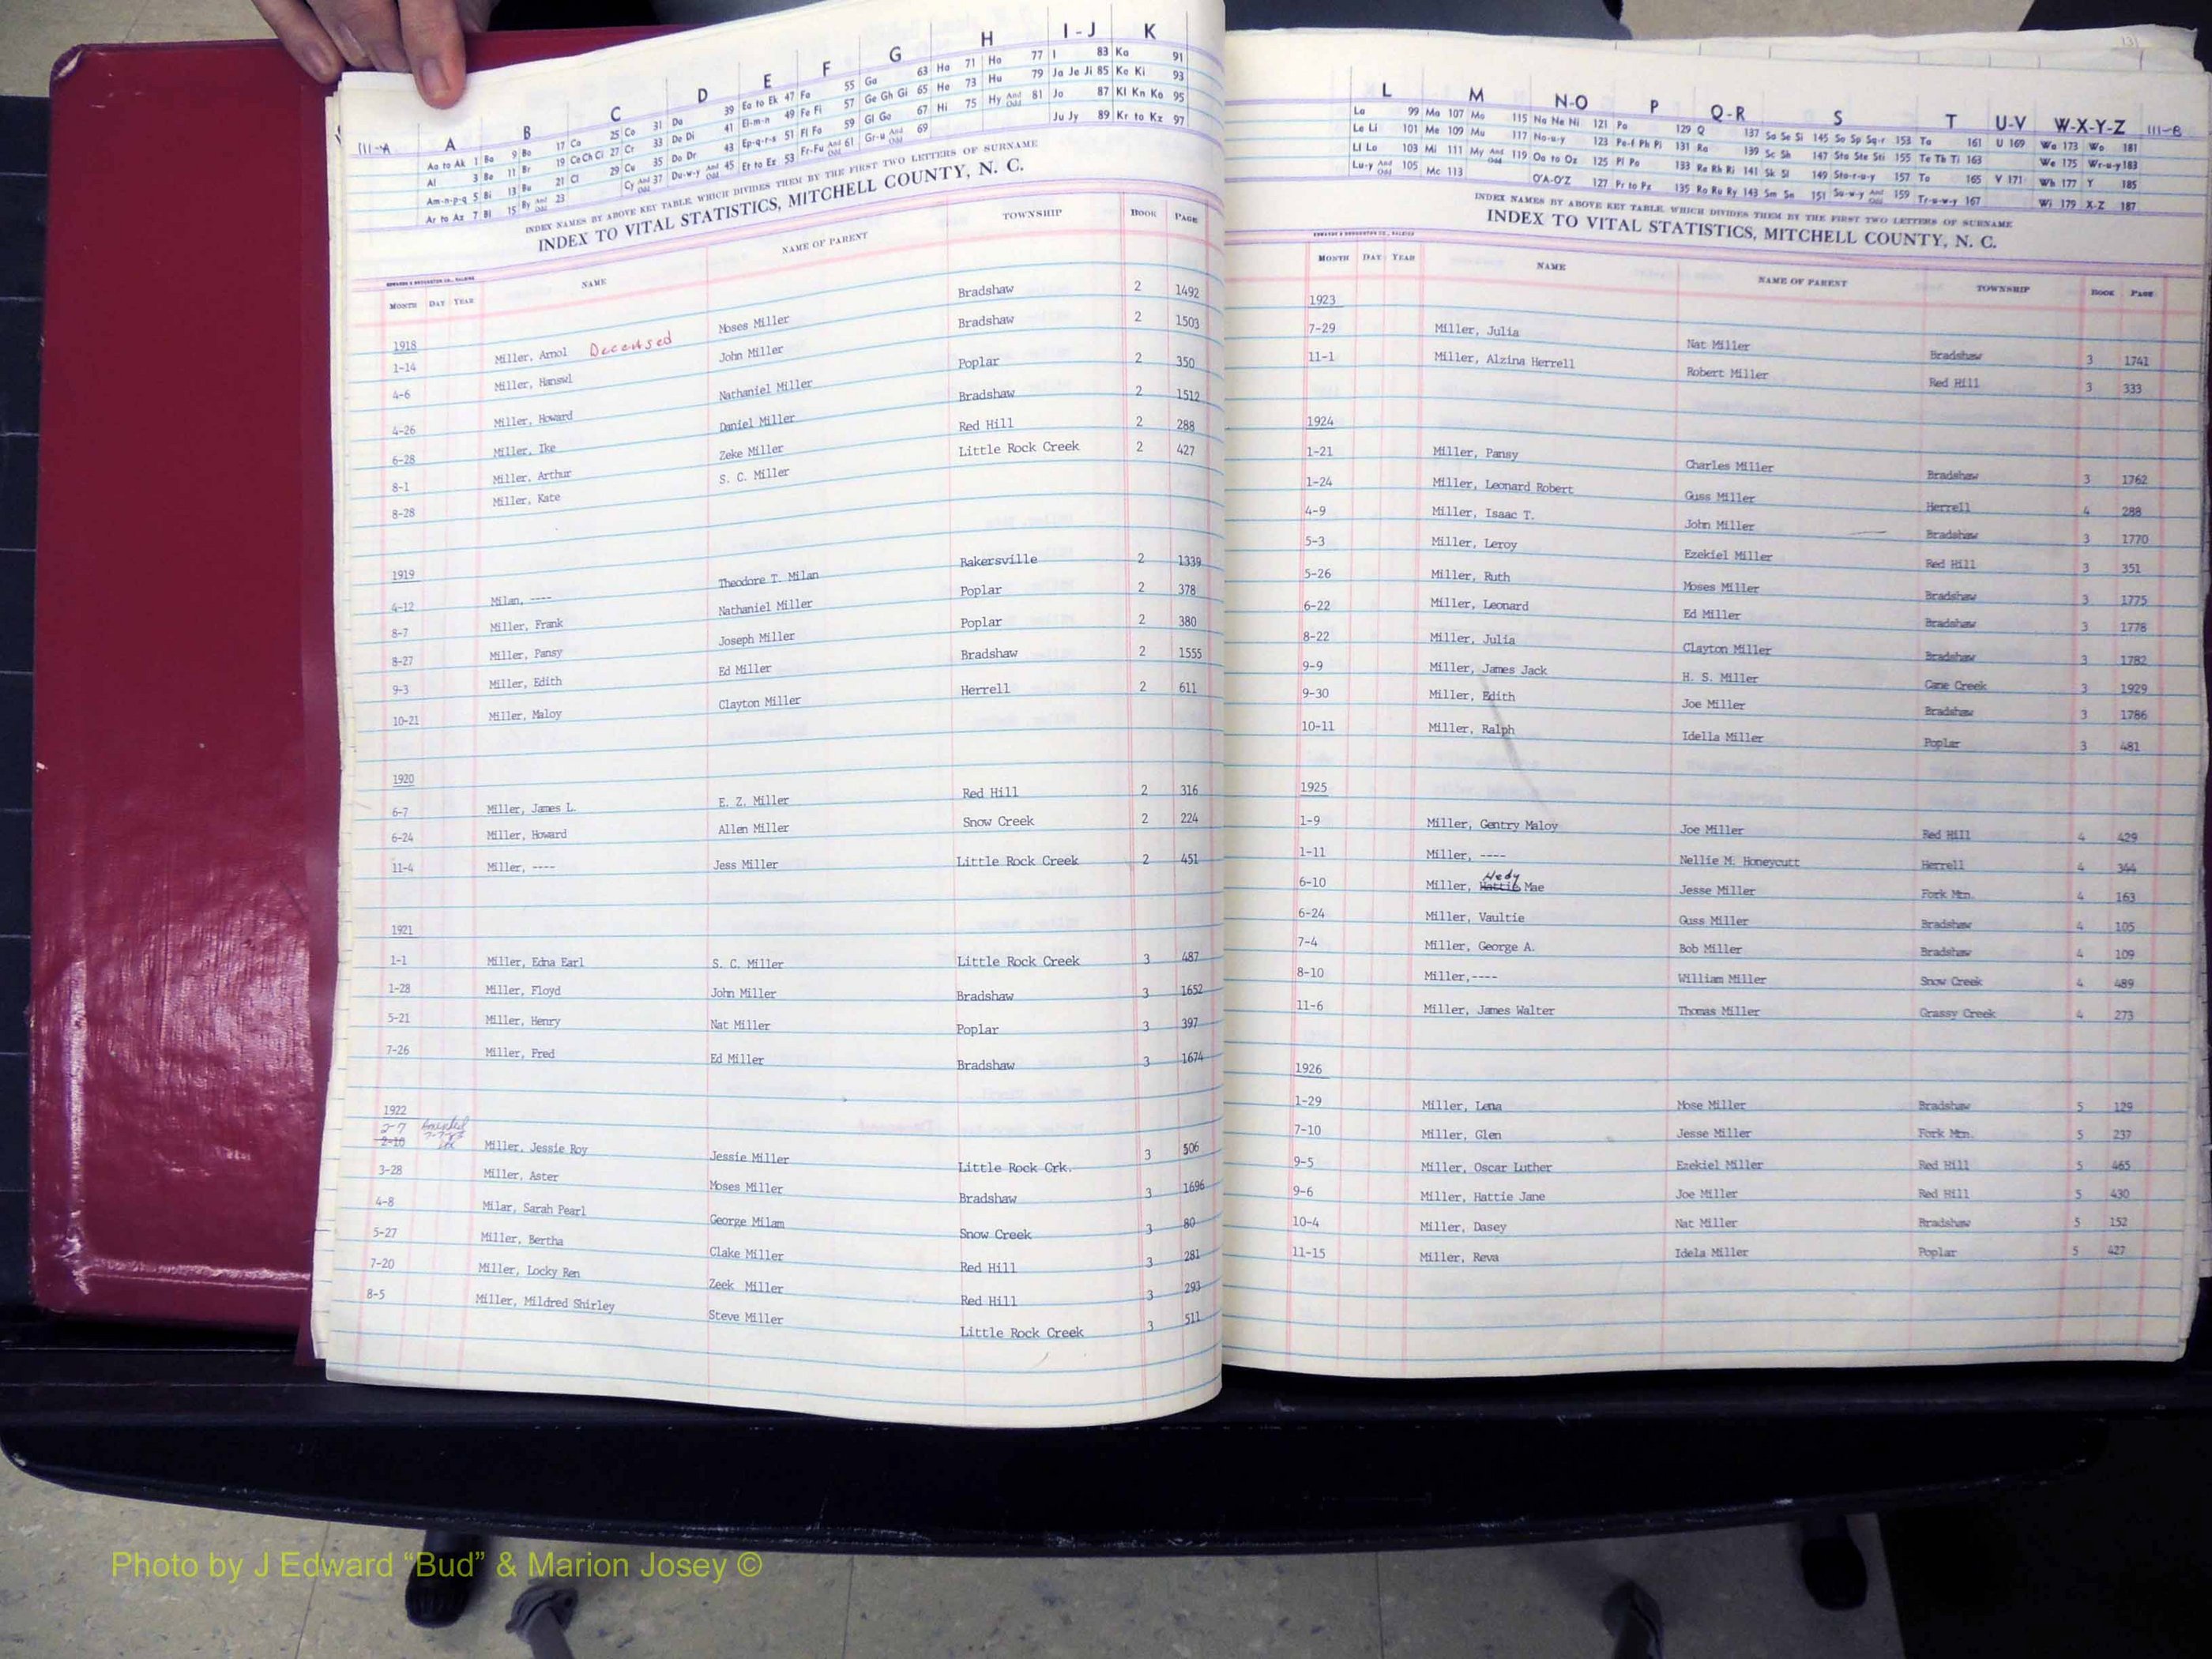 III-A A B C D E F G H I-J K
Aa to Ak 1 Ba 9 Bo 17 Ca 25 Co 31 Da 39 Ea to Ek 47 Fa 55 Ga 63 Ha 71 Ho 77 I 83 Ka 91
Al 3 Be 11 Br 19 Ce Ch Ci 27 Cr 33 De Di 41 El-m-n 49 Fe Fi 57 Ge Gh Gi 65 He 73 Hu 79 Ja Je Ji 85 Ke Ki 93
Am-n-p-q 5 Bi 13 Bu 21 Cl 29 Cu 35 Do Dr 43 Ep-q-r-s 51 Fl Fo 59 Gl Go 67 Hi 75 Hy And Odd 81 Jo 87 Kl Kn Ko 95
Ar to Az 7 Bl 15 By And Odd 23 Cy And Odd 37 Du-w-y And Odd 45 Et to Ez 53 Fr-Fu And Odd 61 Gr-u And Odd 69 Ju Jy 89 Kr to Kz 97
INDEX NAMES BY ABOVE KEY TABLE, WHICH DIVIDES THEM BY THE FIRST TWO LETTERS OF SURNAME
INDEX TO VITAL STATISTICS, MITCHELL COUNTY, N. C.
EDWARDS & BROUGHTON CO., RALEIGH
MONTH DAY YEAR NAME NAME OF PARENT TOWNSHIP BOOK PAGE
1918
1-14 Miller, Arnol Deceased Moses Miller Bradshaw 2 1492
4-6 Miller, Hanswl John Miller Bradshaw 2 1503
4-26 Miller, Howard Nathaniel Miller Poplar 2 350
6-28 Miller, Ike Daniel Miller Bradshaw 2 1512
8-1 Miller, Arthur Zeke Miller Red Hill 2 288
8-28 Miller, Kate S. C. Miller Little Rock Creek 2 427
1919
4-12 Milan, ---- Theodore T. Milan Bakersville 2 1339
8-7 Miller, Frank Nathaniel Miller Poplar 2 378
8-27 Miller, Pansy Joseph Miller Poplar 2 380
9-3 Miller, Edith Ed Miller Bradshaw 2 1555
10-21 Miller, Maloy Clayton Miller Herrell 2 611
1920
6-7 Miller, James L. E. Z. Miller Red Hill 2 316
6-24 Miller, Howard Allen Miller Snow Creek 2 224
11-4 Miller, ---- Jess Miller Little Rock Creek 2 451
1921
1-1 Miller, Edna Earl S. C. Miller Little Rock Creek 3 487
1-28 Miller, Floyd John Miller Bradshaw 3 1652
5-21 Miller, Henry Nat Miller Poplar 3 397
7-26 Miller, Fred Ed Miller Bradshaw 3 1674
1922
2-7
2-10 Miller, Jessie Roy Jessie Miller Little Rock Crk. 3 506
3-28 Miller, Aster Moses Miller Bradshaw 3 1696
4-8 Milar, Sarah Pearl George Milam Snow Creek 3 80
5-27 Miller, Bertha Clake Miller Red Hill 3 281
7-20 Miller, Locky Ren Zeek Miller Red Hill 3 293
8-5 Miller, Mildred Shirley Steve Miller Little Rock Creek 3 511
L M N-O P Q-R S T U-V W-X-Y-Z III-B
La 99 Ma 107 Mo 115 Na Ne Ni 121 Pa 129 Q 137 Sa Se Si 145 So Sp Sq-r 153 Ta 161 U 169 Wa 173 Wo 181
Le Li 101 Me 109 Mu 117 No-u-y 123 Pe-f Ph Pi 131 Ra 139 Sc Sh 147 Sta Ste Sti 155 Te Th Ti 163 We 175 Wr-u-y 183
Ll Lo 103 Mi 111 My And Odd 119 Oa to Oz 125 Pl Po 133 Re Rh Ri 141 Sk Sl 149 Sto-r-u-y 157 To 165 V 171 Wh 177 Y 185
Lu-y And Odd 105 Mc 113 O'A-O'Z 127 Pr to Pz 135 Ro Ru Ry 143 Sm Sn 151 Su-w-y And Odd 159 Tr-u-w-y 167 Wi 179 X-Z 187
INDEX NAMES BY ABOVE KEY TABLE, WHICH DIVIDES THEM BY THE FIRST TWO LETTERS OF SURNAME
INDEX TO VITAL STATISTICS, MITCHELL COUNTY, N. C.
EDWARDS & BROUGHTON CO., RALEIGH
MONTH DAY YEAR NAME NAME OF PARENT TOWNSHIP BOOK PAGE
1923
7-29 Miller, Julia Nat Miller Bradshaw 3 1741
11-1 Miller, Alzina Herrell Robert Miller Red Hill 3 333
1924
1-21 Miller, Pansy Charles Miller Bradshaw 3 1762
1-24 Miller, Leonard Robert Guss Miller Herrell 4 288
4-9 Miller, Isaac T. John Miller Bradshaw 3 1770
5-3 Miller, Leroy Ezekiel Miller Red Hill 3 351
5-26 Miller, Ruth Moses Miller Bradshaw 3 1775
6-22 Miller, Leonard Ed Miller Bradshaw 3 1778
8-22 Miller, Julia Clayton Miller Bradshaw 3 1782
9-9 Miller, James Jack H. S. Miller Cane Creek 3 1929
9-30 Miller, Edith Joe Miller Bradshaw 3 1786
10-11 Miller, Ralph Idella Miller Poplar 3 481
1925
1-9 Miller, Gentry Maloy Joe Miller Red Hill 4 429
1-11 Miller, ---- Nellie M. Honeycutt Herrell 4 344
Hedy
6-10 Miller, Hattie Mae Jesse Miller Fork Mtn. 4 163
6-24 Miller, Vaultie Guss Miller Bradshaw 4 105
7-4 Miller, George A. Bob Miller Bradshaw 4 109
8-10 Miller,---- William Miller Snow Creek 4 489
11-6 Miller, James Walter Thomas Miller Grassy Creek 4 273
1926
1-29 Miller, Lena Mose Miller Bradshaw 5 129
7-10 Miller, Glen Jesse Miller Fork Mtn. 5 237
9-5 Miller, Oscar Luther Ezekiel Miller Red Hill 5 465
9-6 Miller, Hattie Jane Joe Miller Red Hill 5 430
10-4 Miller, Dasey Nat Miller Bradshaw 5 152
11-15 Miller, Reva Idela Miller Poplar 5 427
Photo by J Edward “Bud” & Marion Josey ©